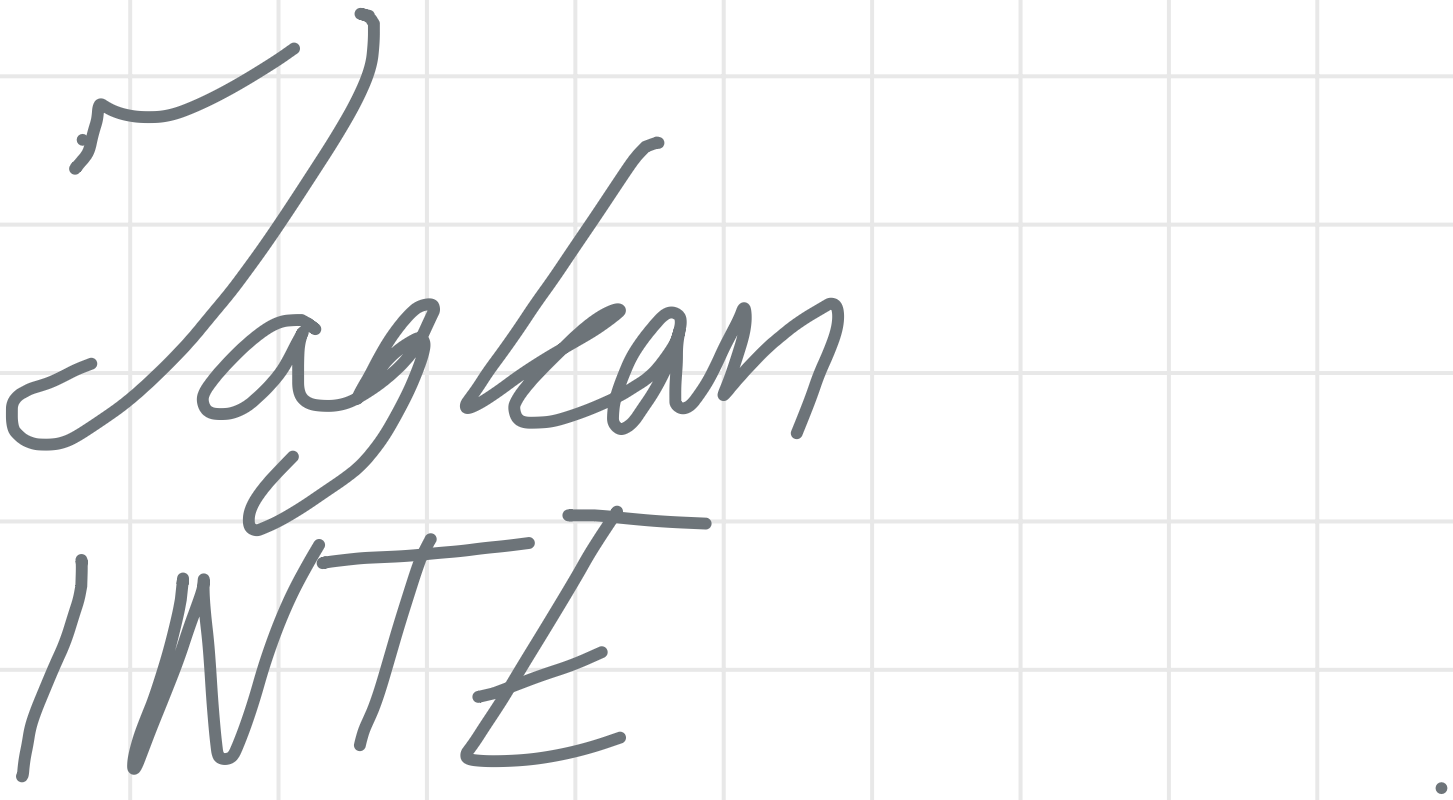 Jag kan
INTE